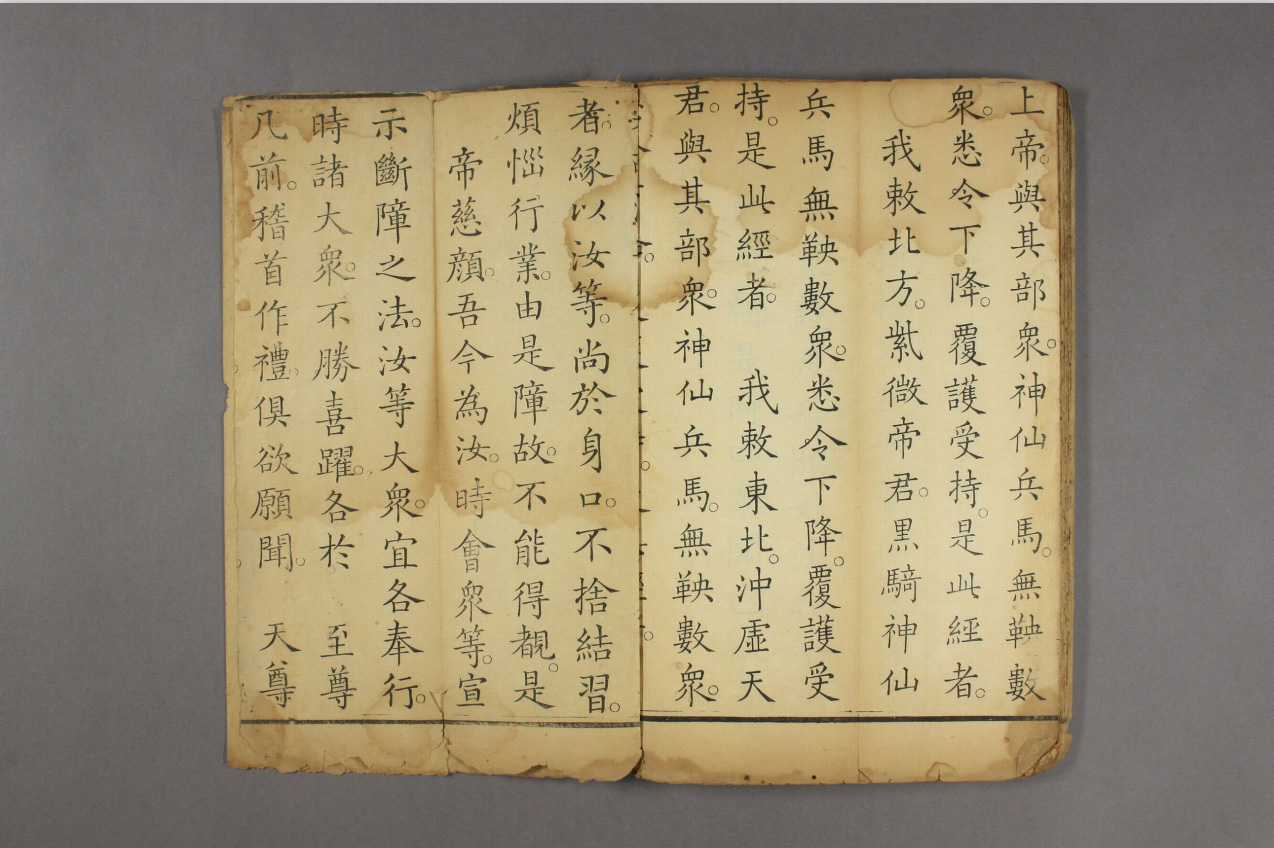 上帝。與其部衆。神仙兵馬。無鞅數
衆。悉令下降。覆護受持。是此經者。
我敕北方。紫微帝君。黑騎神仙
兵馬無鞅數衆。悉令下降。覆護受
持。是此經者。 我敕東北。沖虛天
君。與其部衆。神仙兵馬。無鞅數衆。
者。緣以汝等。尚於身口。不捨結習。
煩惱行業。由是障故。不能得覩。是
帝慈顔。吾今為汝。時會衆等。宣
示斷障之法。汝等大衆。宜各奉行。
時諸大衆。不勝喜躍。各於 至尊
几前。稽首作禮。俱欲願聞。 天尊